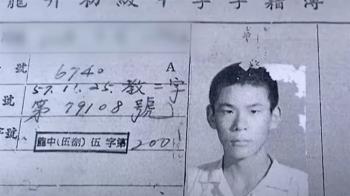 初級中學學籍簿
號 6740 A
57.11.25.教二字
號 第79108號
字號 龍中(伍捌)伍字第 200